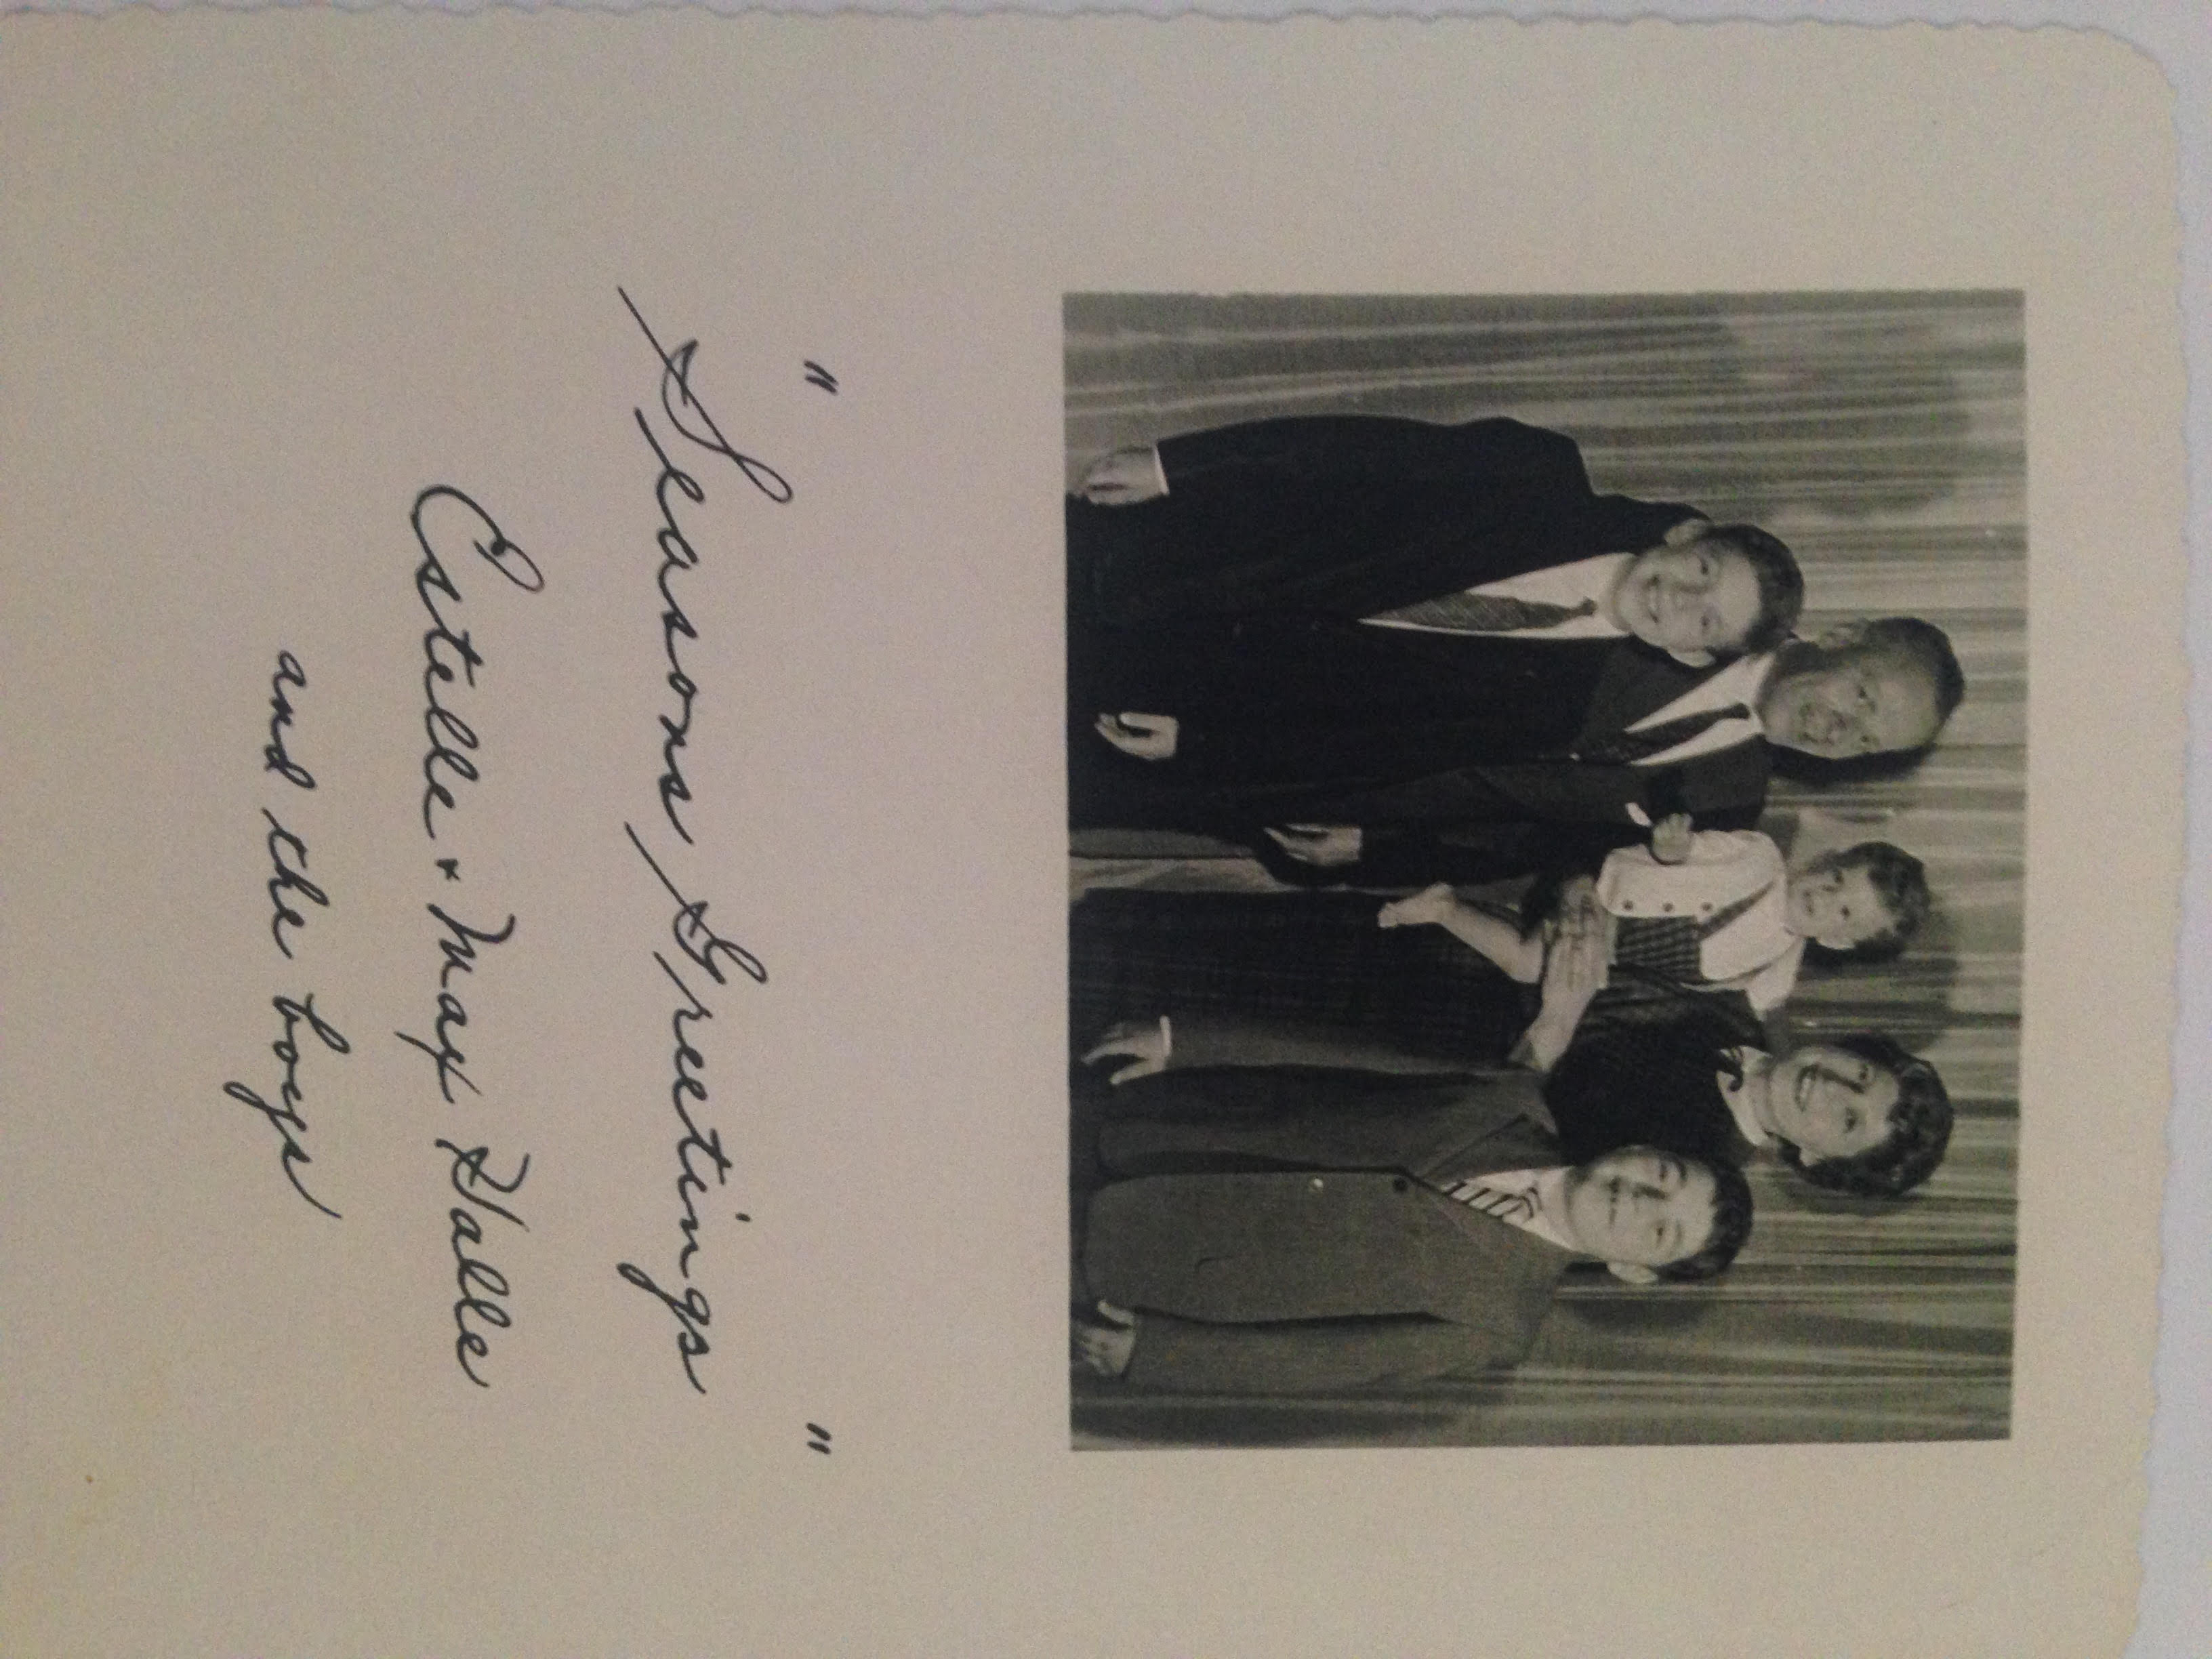 "Seasons Greetings"
Estelle + Max Halle
and the boys